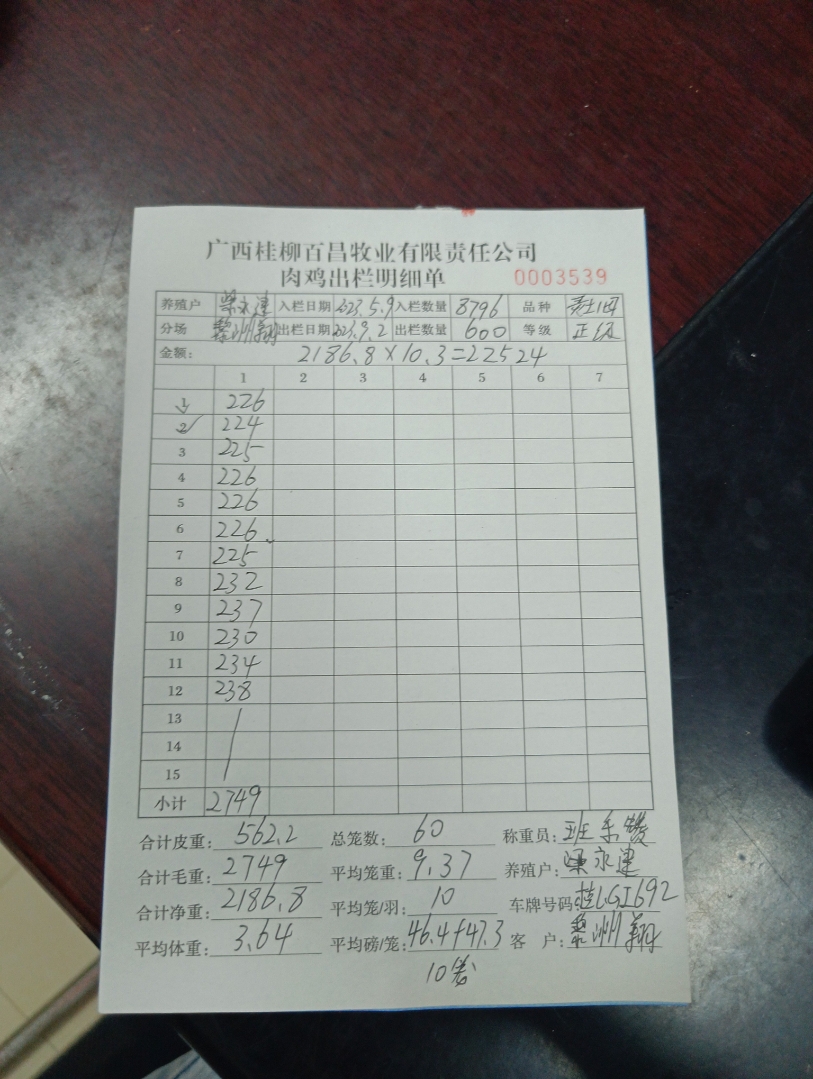 广西桂柳百昌牧业有限责任公司
肉鸡出栏明细单 0003539
养殖户 永建 入栏日期 2023.5.9 入栏数量 8796 品种
分场 黎州翔 出栏日期 2023.9.2 出栏数量 600 等级 正级
金额: 2186.8×10.3=22524
1 2 3 4 5 6 7
1 226
2 224
3 225
4 226
5 226
6 226
7 225
8 232
9 237
10 230
11 234
12 238
13
14
15
小计 2749
合计皮重: 562.2 总笼数: 60 称重员: 班
合计毛重: 2749 平均笼重: 9.37 养殖户: 永建
合计净重: 2186.8 平均笼/羽: 10 车牌号码: 桂LGI692
平均体重: 3.64 平均磅/笼: 46.4+47.3 客户: 黎州翔
10